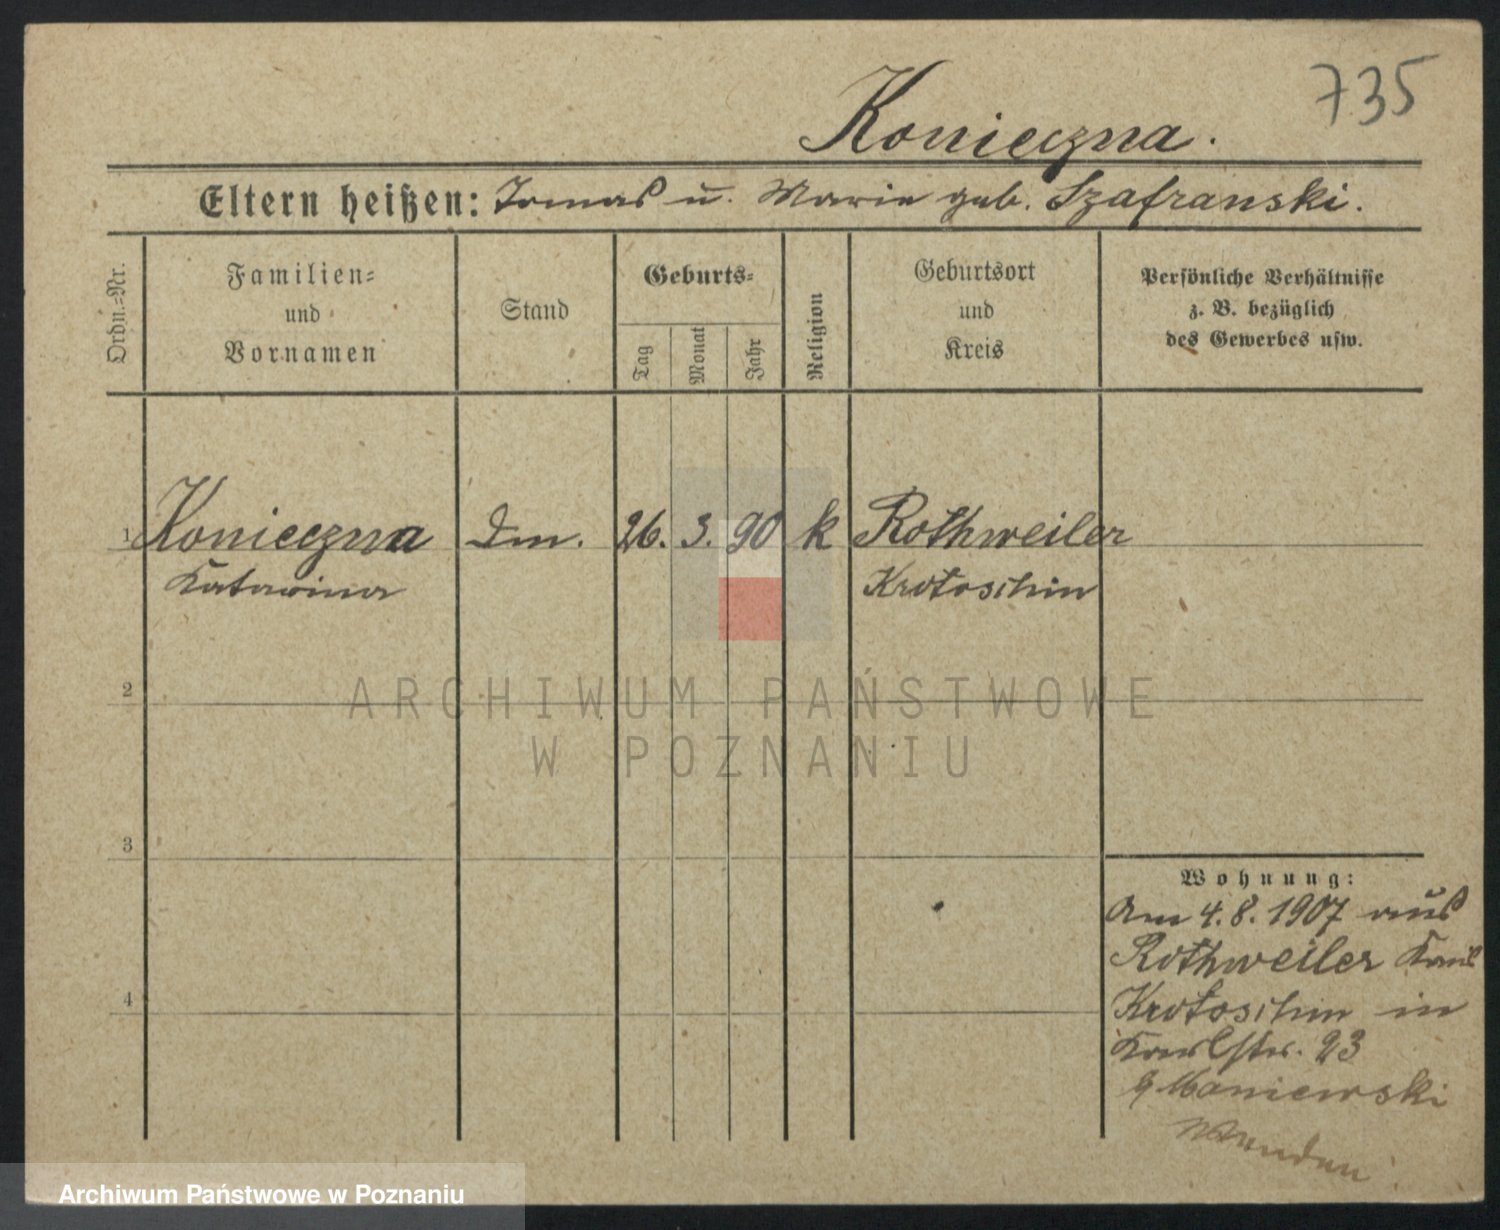 735
Konieczna.
Eltern heißen: Tomas u. Marie geb. Szafranski.
Ordn.=Nr.
Familien=
und
Vornamen
Stand
Geburts=
Tag
Monat
Jahr
Religion
Geburtsort
und
Kreis
Persönliche Verhältnisse
z. B. bezüglich
des Gewerbes usw.
1 Konieczna Dm. 26. 3. 90 k Rothweiler
Katarina Krotoschin
2
ARCHIWUM PAŃSTWOWE
W POZNANIU
3
Wohnung:
Am 4.8.1907 aus
Rothweiler Kreis
Krotoschin in
4
Karlstr. 23
Maniewski
Wenden
Archiwum Państwowe w Poznaniu